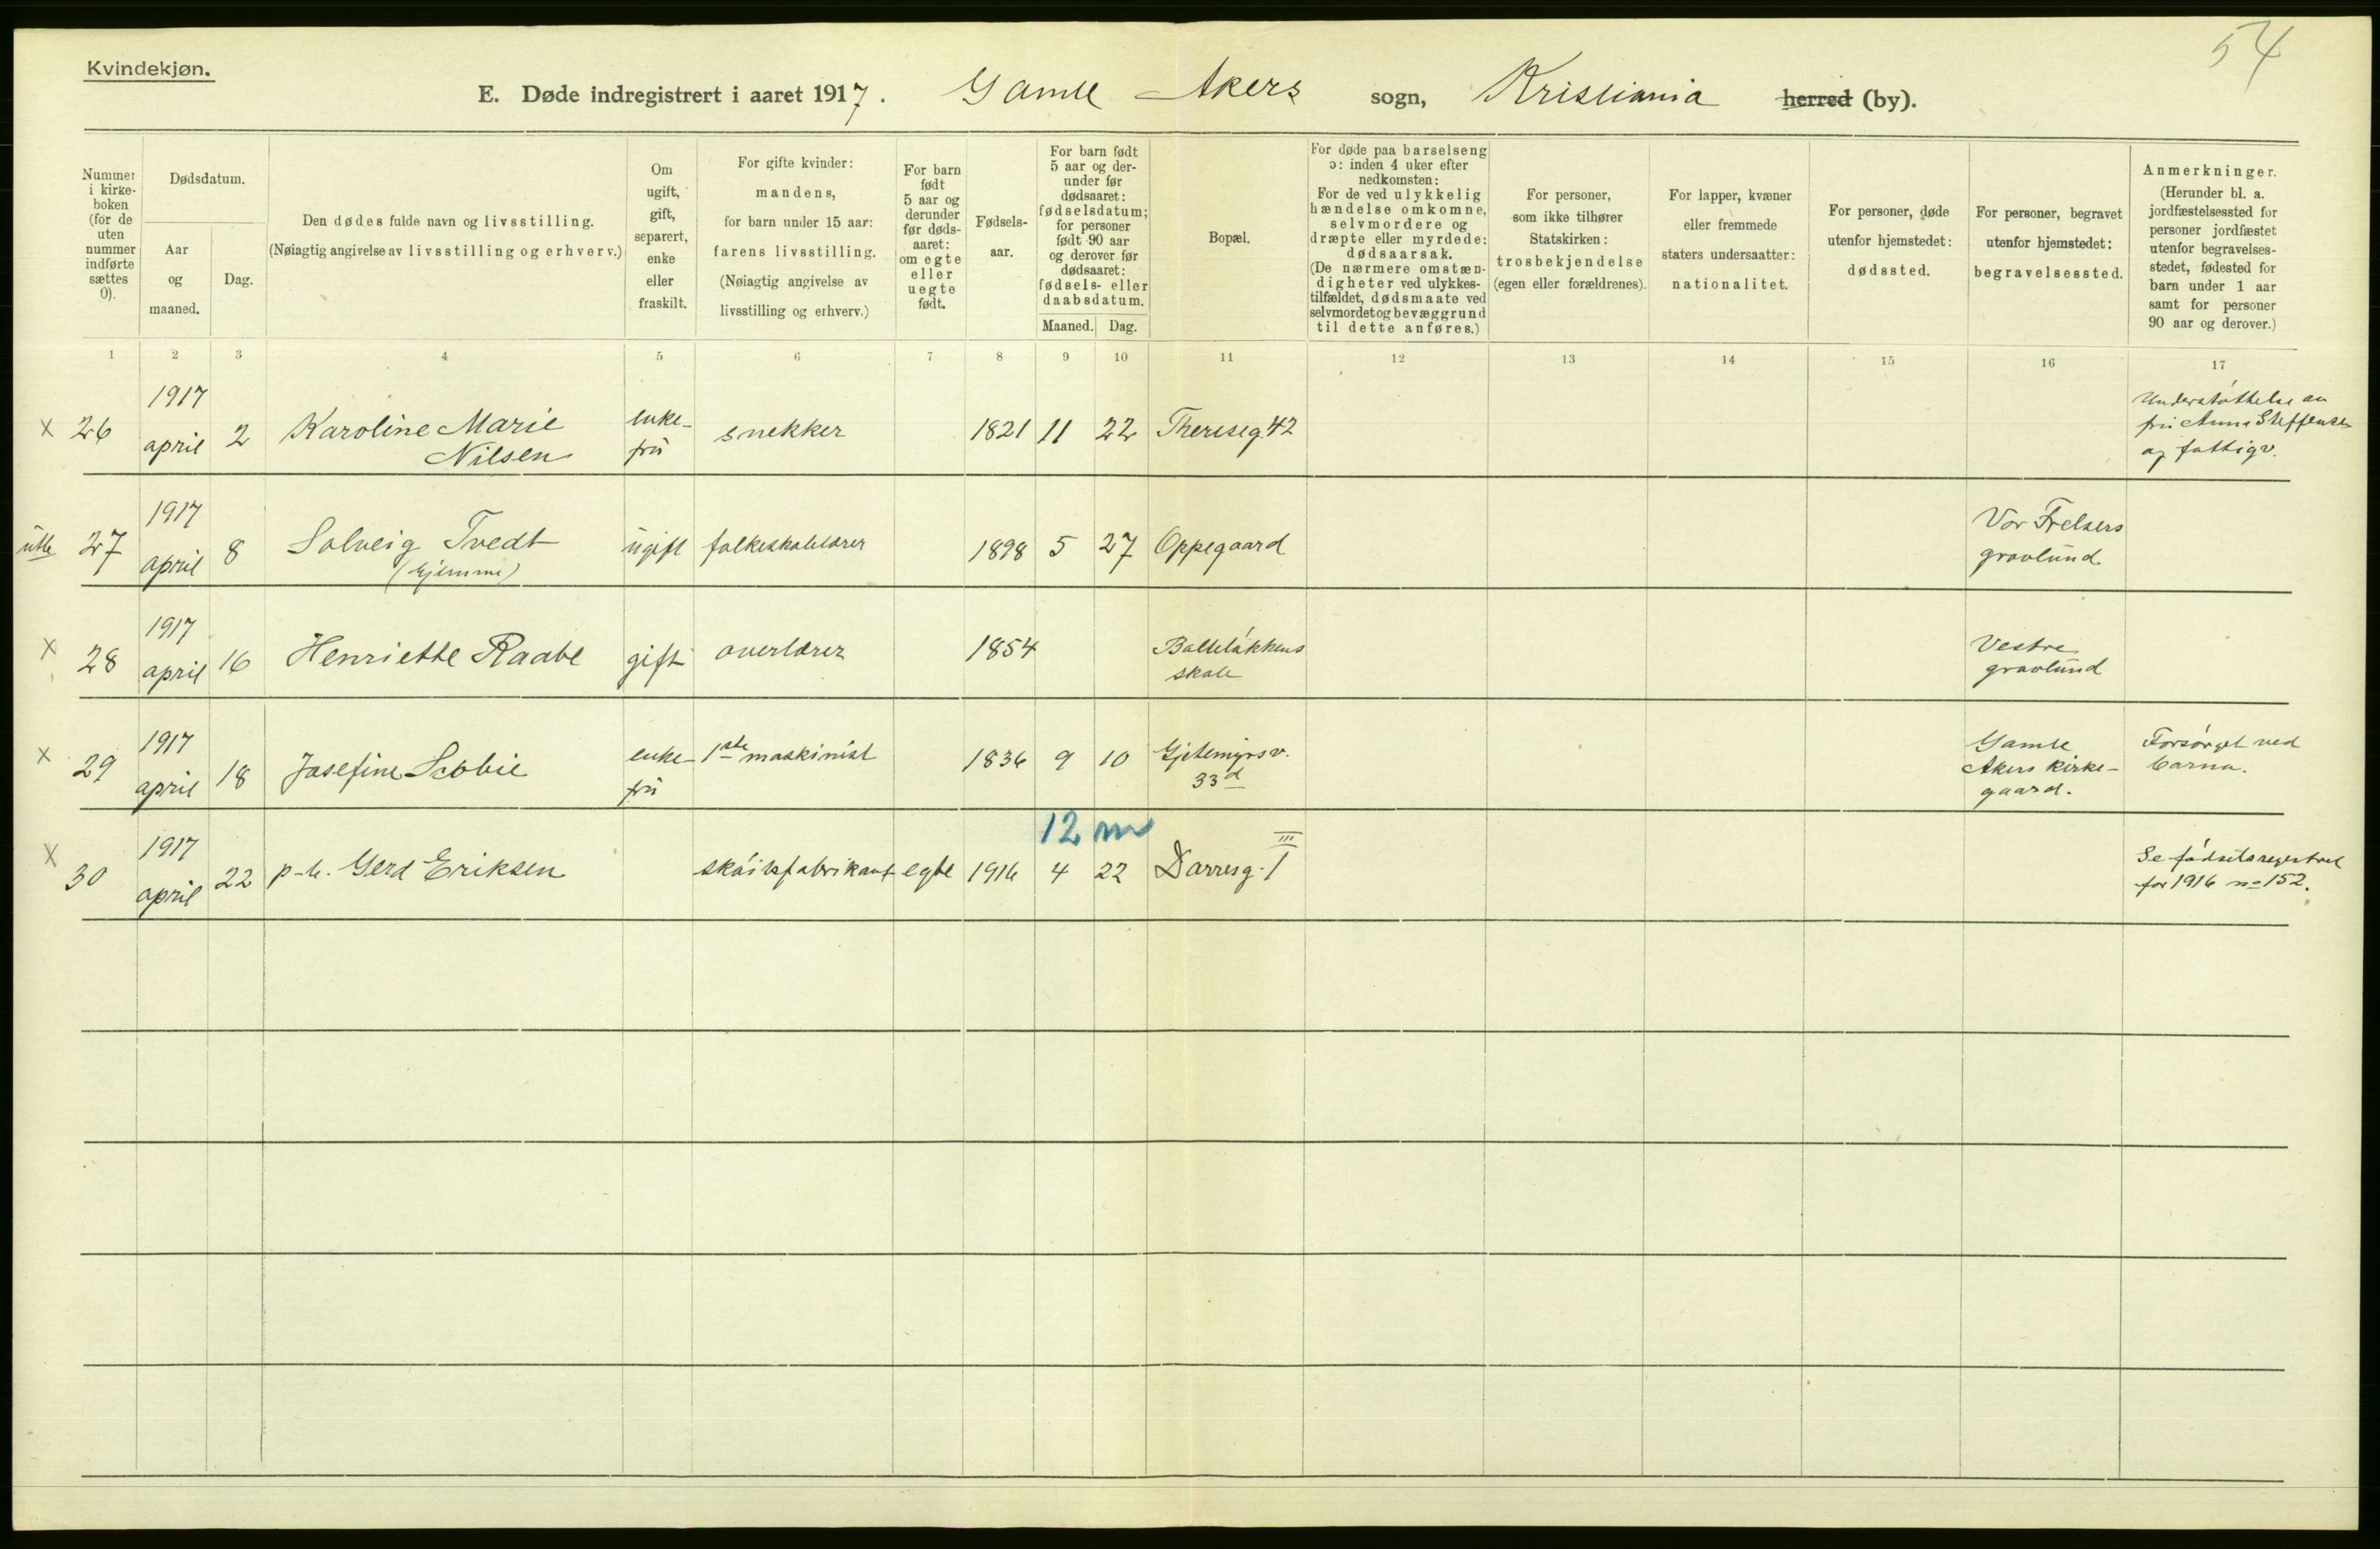 54
Kvindekjøn.
E. Døde indregistrert i aaret 1917. Gamle Akers sogn, Kristiania herred (by).
Nummer
i kirke-
boken
(for de
uten
nummer
indførte
sættes
0).
Dødsdatum.
Aar
og
maaned.
Dag.
Den dødes fulde navn og livsstilling.
(Nøiagtig angivelse av livsstilling og erhverv.)
Om
ugift,
gift,
separert,
enke
eller
fraskilt.
For gifte kvinder:
mandens,
for barn under 15 aar:
farens livsstilling.
(Nøiagtig angivelse av
livsstilling og erhverv.)
For barn
født
5 aar og
derunder
før døds-
aaret:
om egte
eller
uegte
født.
Fødsels-
aar.
For barn født
5 aar og der-
under før
dødsaaret:
fødselsdatum;
for personer
født 90 aar
og derover før
dødsaaret:
fødsels- eller
daabsdatum.
Maaned. Dag.
Bopæl.
For døde paa barselseng
ɔ: inden 4 uker efter
nedkomsten:
For de ved ulykkelig
hændelse omkomne,
selvmordere og
dræpte eller myrdede:
dødsaarsak.
(De nærmere omstæn-
digheter ved ulykkes-
tilfældet, dødsmaate ved
selvmordet og bevæggrund
til dette anføres.)
For personer,
som ikke tilhører
Statskirken:
trosbekjendelse
(egen eller forældrenes).
For lapper, kvæner
eller fremmede
staters undersaatter:
nationalitet.
For personer, døde
utenfor hjemstedet:
dødssted.
For personer, begravet
utenfor hjemstedet:
begravelsessted.
Anmerkninger.
(Herunder bl. a.
jordfæstelsessted for
personer jordfæstet
utenfor begravelses-
stedet, fødested for
barn under 1 aar
samt for personer
90 aar og derover.)
1 2 3 4 5 6 7 8 9 10 11 12 13 14 15 16 17
x 26 1917 april 2 Karoline Marie
Nilsen
enke-
frü
snekker 1821 11 22 Thereseg. 42
Understøttelse av
frü Anna Steffensen
og fattigv.
27 1917 april 8 Solveig Tvedt
(hjemme)
ügift folkeskolelærer 1898 5 27 Oppegaard
Vor Frelsers
gravlünd
x 28 1917 april 16 Henriette Raabe gift overlærer 1854 Bolteløkkens
skole
Vestre
gravlünd
x 29 1917 april 18 Josefine Scobie
enke-
frü
1ste maskinist 1836 9 10 Gjetemyrsv.
33d
Gamle
Akers kirke-
gaard.
Forsørget ved
barna.
12 m
x 30 1917 april 22 p-b. Gerd Eriksen skøitefabrikant egte 1916 4 22 Darresg. 1 III
Se fødselsregistret
for 1916 no 152.